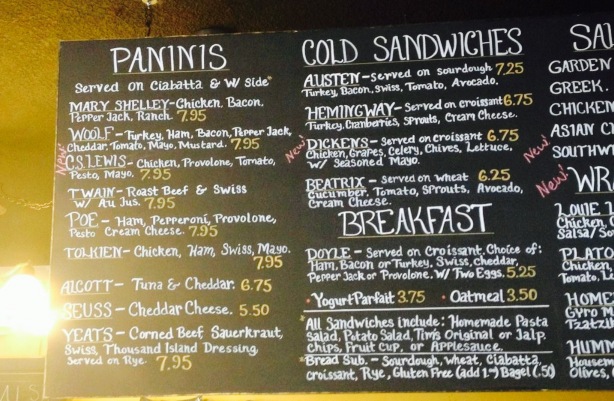 PANINIS
Served on Ciabatta & W/ Side*
MARY SHELLEY - Chicken, Bacon,
Pepper Jack, Ranch. 7.95
WOOLF - Turkey, Ham, Bacon, Pepper Jack,
Cheddar, Tomato, Mayo, Mustard. 7.95
New!
C.S. LEWIS - Chicken, Provolone, Tomato,
Pesto, Mayo. 7.95
TWAIN - Roast Beef & Swiss
w/ Au Jus. 7.95
POE - Ham, Pepperoni, Provolone,
Pesto Cream Cheese. 7.95
TOLKIEN - Chicken, Ham, Swiss, Mayo.
7.95
ALCOTT - Tuna & Cheddar. 6.75
SEUSS - Cheddar Cheese. 5.50
YEATS - Corned Beef Sauerkraut,
Swiss, Thousand Island Dressing,
Served on Rye. 7.95
COLD SANDWICHES
AUSTEN - Served on sourdough 7.25
Turkey, Bacon, Swiss, Tomato, Avocado.
HEMINGWAY - Served on croissant 6.75
Turkey, Cranberries, Sprouts, Cream Cheese.
New!
DICKENS - Served on croissant 6.75
Chicken, Grapes, Celery, Chives, Lettuce.
w/ Seasoned Mayo.
BEATRIX - Served on Wheat 6.25
Cucumber, Tomato, Sprouts, Avocado,
Cream Cheese.
BREAKFAST
DOYLE - Served on Croissant, Choice of:
Ham, Bacon or Turkey, Swiss, Cheddar,
Pepper Jack or Provolone. W/ Two Eggs. 5.25
• Yogurt Parfait 3.75 • Oatmeal 3.50
*All Sandwiches Include: Homemade Pasta
Salad, Potato Salad, Tim's Original or Jalp.
chips, Fruit Cup, or Applesauce.
*Bread Sub. - Sourdough, Wheat, Ciabatta,
Croissant, Rye, Gluten Free (add 1.-) Bagel (.50)
SAL
GARDEN
GREEK.
CHICKEN
New!
ASIAN C
SOUTHW
New!
WR
LOUIE L
Chicken,
Salsa/ So
PLATO
Chicken,
Tomato, L
HOME
Gyro M
Tzatzik
HUMM
Housem
Olives,